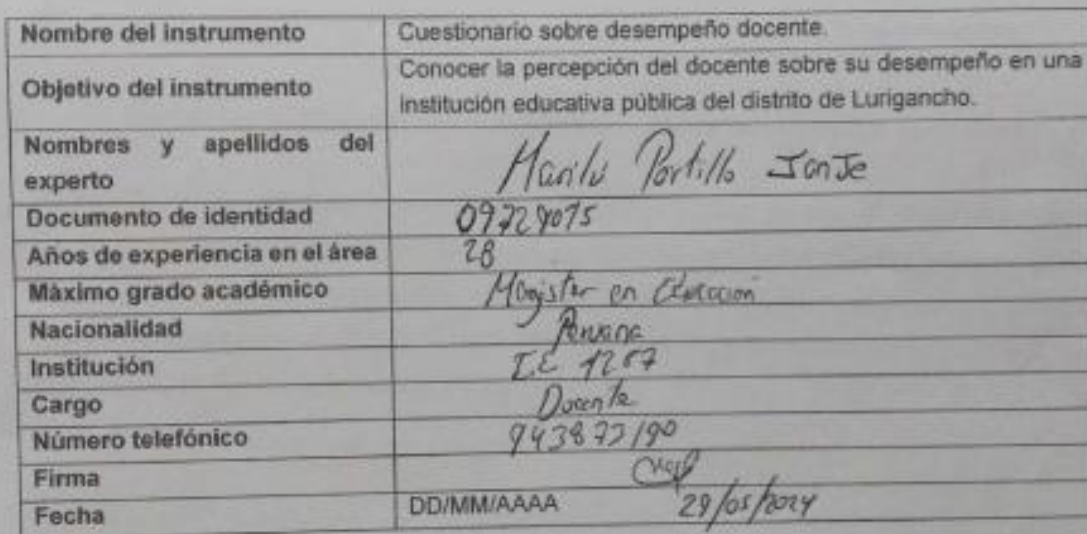 Nombre del instrumento Cuestionario sobre desempeño docente.
Objetivo del instrumento Conocer la percepción del docente sobre su desempeño en una
institución educativa pública del distrito de Lurigancho.
Nombres y apellidos del
experto Marilú Portillo
Documento de identidad
Años de experiencia en el área 28
Máximo grado académico Magister en Educación
Nacionalidad Peruana
Institución I.E
Cargo Docente
Número telefónico
Firma
Fecha DD/MM/AAAA 29/05/2024